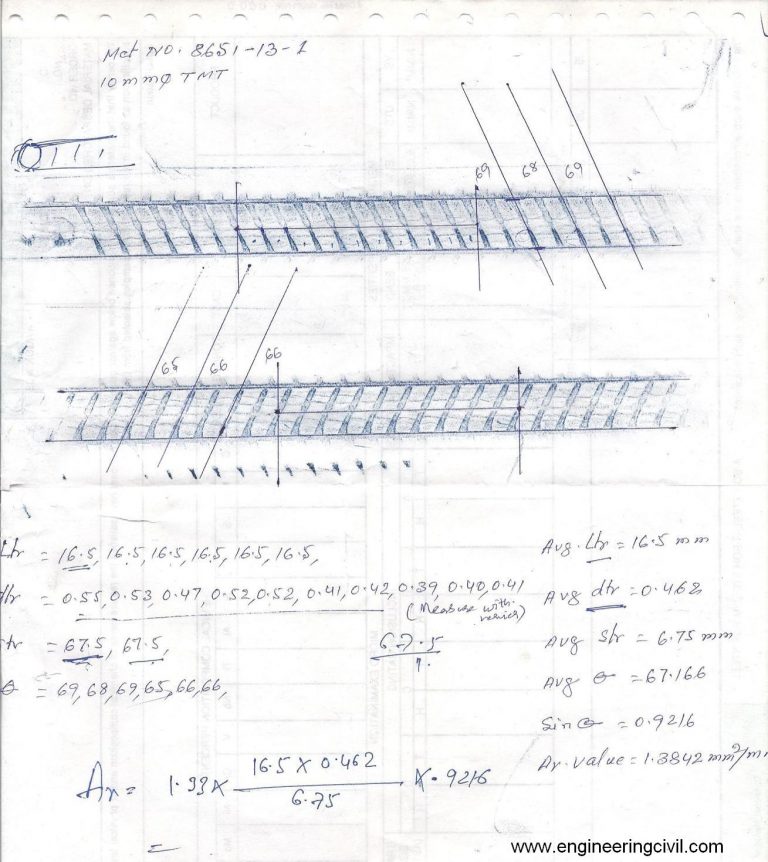 Mct NO. 8651-13-1
10mmφ TMT
69 68 69
65 66 66
Ltr = 16.5, 16.5, 16.5, 16.5, 16.5, 16.5,
dtr = 0.55, 0.53, 0.47, 0.52, 0.52, 0.41, 0.42, 0.39, 0.40, 0.41
(Measure with
str = 67.5, 67.5,
67.5
θ = 69, 68, 69, 65, 66, 66,
Avg. Ltr = 16.5 mm
Avg dtr = 0.462
Avg str = 6.75 mm
Avg θ = 67.166
Sin θ = 0.9216
Ar. value = 1.3842 mm²/m
Ar = 1.33 x 16.5 x 0.462 x .9216
6.75
www.engineeringcivil.com